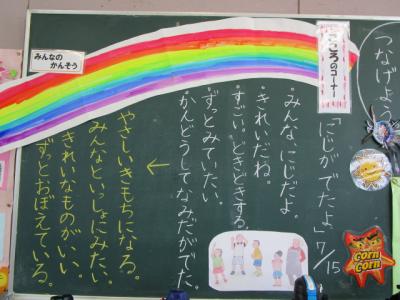 つなげよう
こころのコーナー
「にじがでたよ」7/15
みんな、にじだよ。
きれいだね。
すごい。どきどきする。
ずっとみていたい。
かんどうしてなみだがでた。
みんなの
かんそう
←
やさしいきもちになる。
みんなといっしょにみたい。
きれいなものがいい。
ずっとおぼえている。
CORN
CORN